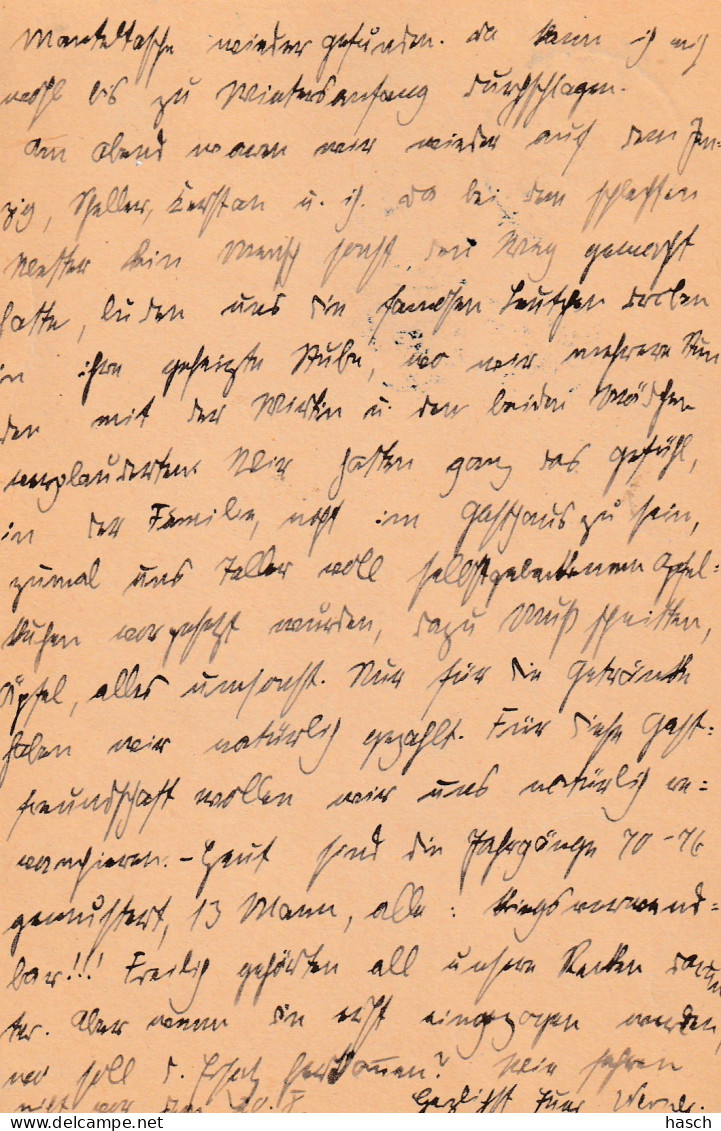 Manteltasche wieder gefunden. Da kann ich mich
wohl bis zu Wintersanfang durchschlagen.
Am Abend waren wir wieder auf dem Jen-
zig, Scheller, Kerstan u. ich. Da bei dem schlechten
Wetter kein Mensch sonst den Weg gemacht
hatte, luden uns die famosen Leutchen droben
in ihre geheizte Stube, wo wir mehrere Stun
den mit der Wirtin u. den beiden Mädchen
verplauderten. Wir hatten ganz das Gefühl,
in der Familie, nicht im Gasthaus zu sein,
zumal uns Teller voll selbstgebackenem Apfel=
kuchen vorgesetzt wurden, dazu Musschnitten,
Äpfel, alles umsonst. Nur für die Getränke
haben wir natürlich gezahlt. Für diese Gast=
freundschaft wollen wir uns natürlich re=
vanchieren. – Heut sind die Jahrgänge 70–76
gemustert, 13 Mann, alle: kriegsverwend=
bar!!! Freilich gehörten all unsere darun
ter. Aber wenn die erst eingezogen werden,
wo soll d. Ersatz herkommen? Wir fahren
nicht vor dem Herzlichst Euer Werner.
hasch